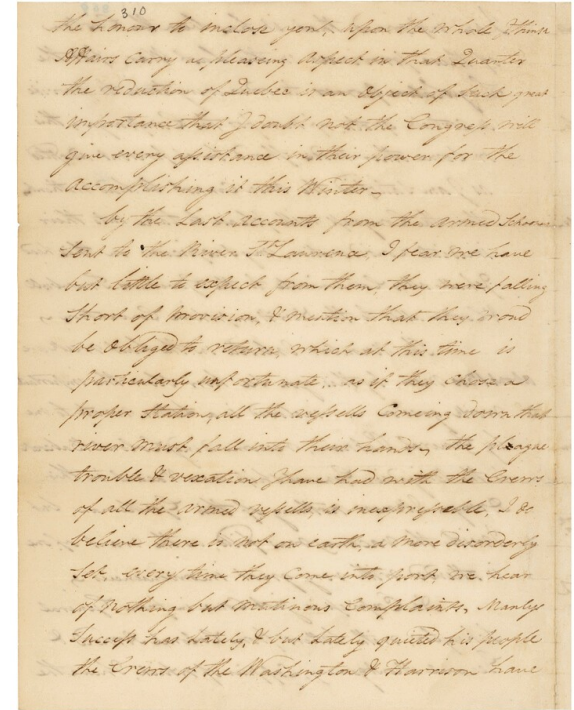 310
the honour to inclose you, upon the whole I think
Affairs Carry a pleasing Aspect in that Quarter
the reduction of Quebec is an Object of Such great
importance that I doubt not the Congress will
give every assistance in their power for the
Accomplishing it this Winter—
by the Last accounts from the armed Schooners
Sent to the River St Lawrence, I fear we have
but little to expect from them, they were falling
Short of provision, & mention that they woud
be Obliged to return, which at this time is
particularly unfortunate, as if they chose a
proper Station, all the vessells Comeing down that
river must fall into their hands, the plague
trouble & vexation I have had with the Crews
of all the armed vessells, is inexpressable, I do
believe there is not on earth, a more disorderly
Set, every time they Come into port we hear
of Nothing but mutinous Complaints, Manlys
Success has Lately, & but Lately quieted his people
the Crews of the Washington & Harrison have